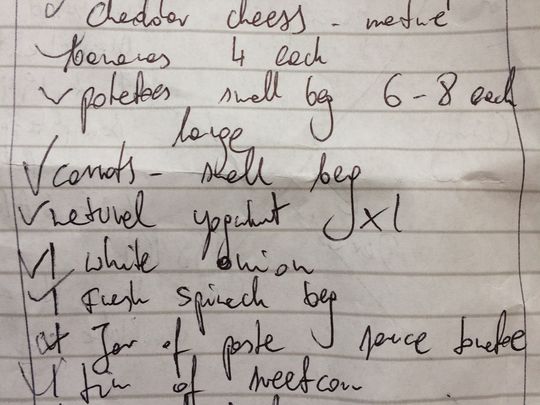 ✓ cheddar cheess - meture
✓ bananas 4 each
✓ potatoes small bag 6-8 each
large
✓ carrots - small bag
✓ naturel yoghurt x1
✓1 white onion
✓1 fresh spinach bag
Jar of paste sauce
✓1 tin of sweetcorn